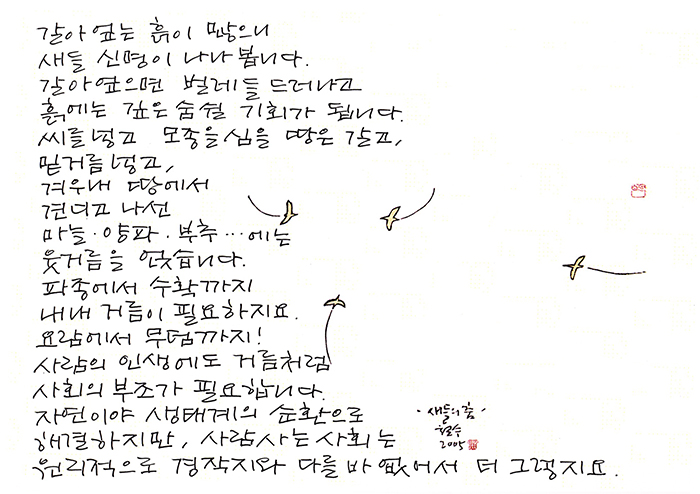 갈아엎는 흙이 많으니
새들 신명이 나나 봅니다.
갈아엎으면 벌레들 드러나고
흙에는 깊은 숨쉴 기회가 됩니다.
씨를 넣고 모종을 심을 땅은 갈고,
밑거름 넣고,
겨우내 땅에서
견디고 나선
마늘·양파·부추…에는
웃거름을 얹습니다.
파종에서 수확까지
내내 거름이 필요하지요.
요람에서 무덤까지!
사람의 인생에도 거름처럼
사회의 부조가 필요합니다.
자연이야 생태계의 순환으로
해결하지만, 사람사는 사회는
원리적으로 경작지와 다를 바 없어서 더 그렇지요.
·새들의 춤·
철수
2005